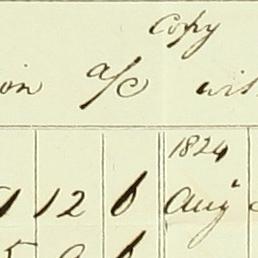 Copy
on a/c wit
1824
1 12 6 Augt